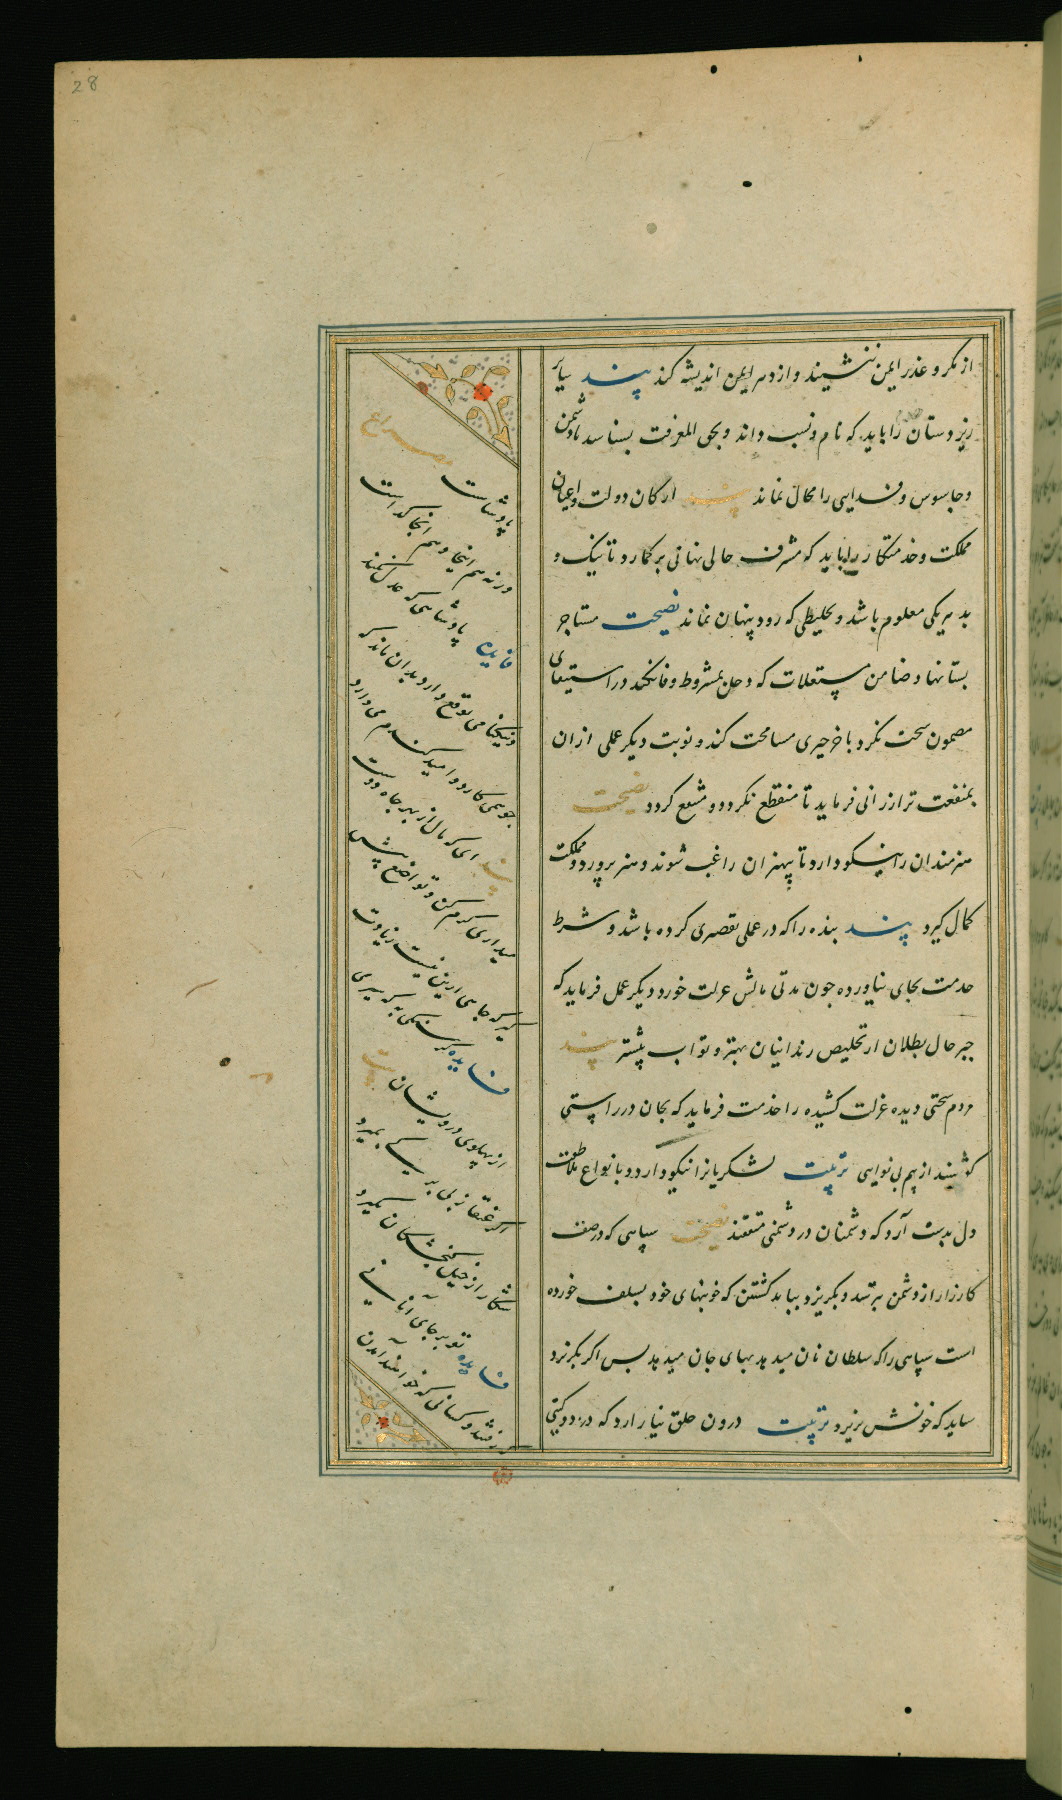 28
از مکر و غدر ایمن ننشیند و از دهر ایمن اندیشه کند پند سایر
زیردستان را باید که نام و نسب داند و بحق المعرفت بشناسد تا دشمن
و جاسوس و فدایی را مجال نماند پند ارکان دولت و اعیان
مملکت و خدمتکار را باید که مشرف حالی نهانی برگمارد تا نیک و
بد هر یکی معلوم باشد و تخلیطی که رود پنهان نماند نصیحت مستاجر
بستانها و ضامن مستغلات که دخل بمشروط وفا نکند در استیفای
مضمون سخت نگیرد با خرجیری مسامحت کند و نوبت دیگر عملی از آن
بمنفعت تر ارزانی فرماید تا منقطع نگردد و منتفع گردد نصیحت
هنرمندان را نیکو دارد تا بیهنران راغب شوند و هنر پرورد و مملکت
کمال گیرد پند بنده را که در عملی تقصیری کرده باشد و شرط
خدمت بجای نیاورده چون مدتی مالش عزلت خورد دیگر عمل فرماید که
جبر حال بطلان از تخلیص زندانیان بهتر و ثواب بیشتر پند
مردم سختی دیده عزلت کشیده را خدمت فرماید که بجان در راستی
کوشیند از بیم بی نوایی تربیت لشکریانرا نیکو دارد و بانواع ملاطفت
دل بدست آرد که دشمنان در دشمنی متفقند نصیحت سپاهی که در صف
کارزار از دشمن بترسد و بگریزد بباید کشتن که خونبهای خود بسلف خورده
است سپاهی را که سلطان نان میدهد بهای جان میدهد پس اگر بگریزد
شاید که خونش بریزد تربیت درون خلق نیازارد که در دو گیتی
مصراع
پادشاست
ورنه هم اینجا و هم آنجا گداست
فایده پادشاهی که عدل نکند
و نیکنامی توقع دارد بدان ماند که
جو همی کارد و امید گندم می دارد
پند ای که مال از بهر جاه دوست
میداری کرم کن و تواضع پیش
گیر که جاهی ازین نیست زیادت
فایده گرسنگی به که سیری
از پهلوی درویشان بیت
اگر عنقا ز بی برگی بمیرد
شکار از چنگ گنجشکان نگیرد
فایده تو بر جای آنانی
که رفتند و کسانی که خواهند آمدن